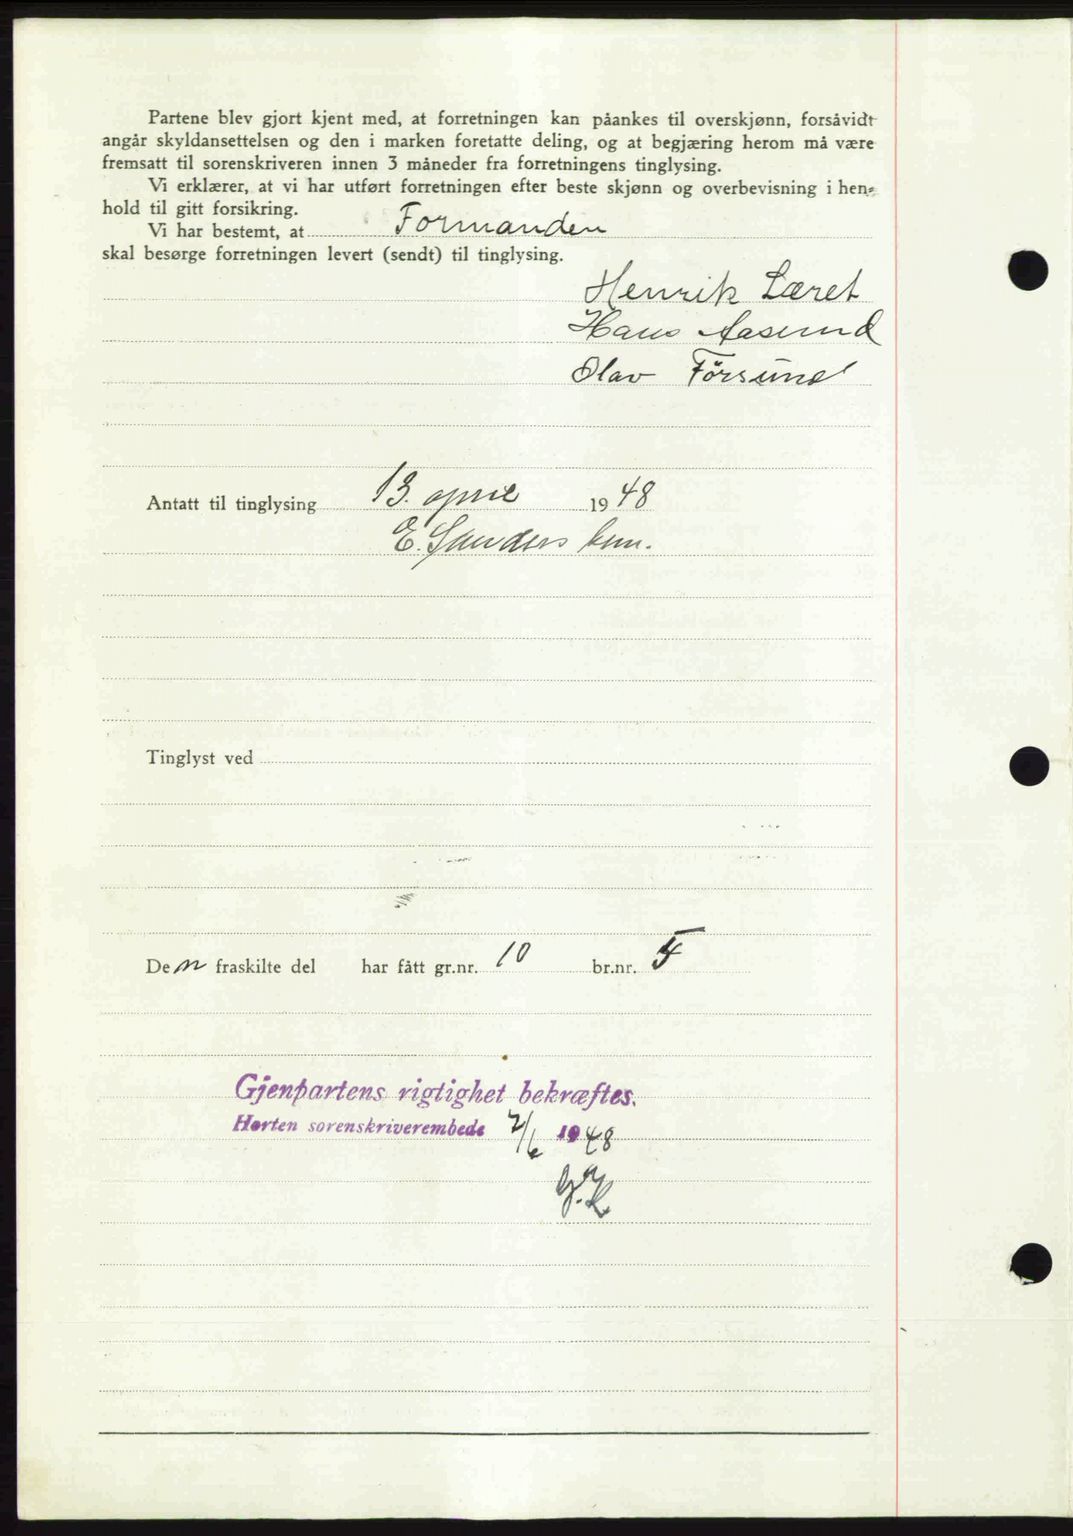 Partene blev gjort kjent med, at forretningen kan påankes til overskjønn, forsåvidt
angår skyldansettelsen og den i marken foretatte deling, og at begjæring herom må være
fremsatt til sorenskriveren innen 3 måneder fra forretningens tinglysing.
Vi erklærer, at vi har utført forretningen efter beste skjønn og overbevisning i hen-
hold til gitt forsikring.
Vi har bestemt, at Formanden
skal besørge forretningen levert (sendt) til tinglysing.
Henrik Læret
Hans Aasund
Olav Førsund
Antatt til tinglysing 13. april 1948
E. Sanders
Tinglyst ved
Den fraskilte del har fått gr.nr. 10 br.nr. 5
Gjenpartens rigtighet bekræftes.
Horten sorenskriverembede 2/6 1948